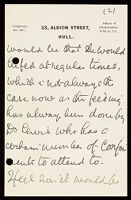 (2)
Telephone
No. 201.
23, ALBION STREET,
HULL.
Hours of Consultation
would be that she would
be fed at regular times,
which is not always the
case now as the feeding
has always been done by
Dr Lewis who has a
certain number of Confine
ments to attend to.
I feel sure it would be